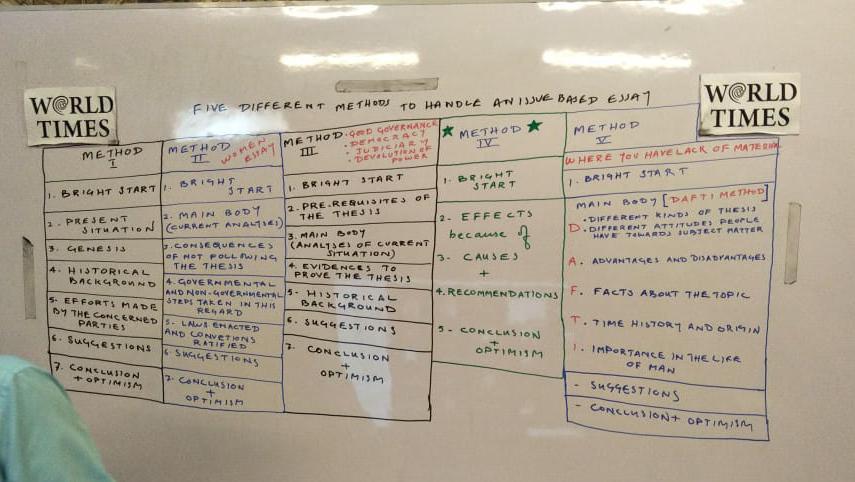 W@RLD
TIMES
W@RLD
TIMES
FIVE DIFFERENT METHODS TO HANDLE AN ISSUE BASED ESSAY
METHOD
I
1. BRIGHT START
2. PRESENT
SITUATION
3. GENESIS
4. HISTORICAL
BACKGROUND
5. EFFORTS MADE
BY THE CONCERNED
PARTIES
6. SUGGESTIONS
7. CONCLUSION
+ OPTIMISM
METHOD
II
WOMEN
ESSAY
1. BRIGHT
START
2. MAIN BODY
(CURRENT ANALYSES)
3. CONSEQUENCES
OF NOT FOLLOWING
THE THESIS
4. GOVERNMENTAL
AND NON-GOVERNMENTAL
STEPS TAKEN IN THIS
REGARD
5. LAWS ENACTED
AND CONVETIONS
RATIFIED
6. SUGGESTIONS
7. CONCLUSION
+
OPTIMISM
METHOD
III
• GOOD GOVERNANCE
• DEMOCRACY
• JUDICIARY
• DEVOLUTION OF
POWER
1. BRIGHT START
2. PRE-REQUISITES OF
THE THESIS
3. MAIN BODY
(ANALYSES OF CURRENT
SITUATION)
4. EVIDENCES TO
PROVE THE THESIS
5. HISTORICAL
BACKGROUND
6. SUGGESTIONS
7. CONCLUSION
+
OPTIMISM
★ METHOD ★
IV
1. BRIGHT
START
2. EFFECTS
because of
3. CAUSES
+
4. RECOMMENDATIONS
5. CONCLUSION
+
OPTIMISM
METHOD
V
WHERE YOU HAVE LACK OF MATERIAL
1. BRIGHT START
MAIN BODY [DAFTI METHOD]
• DIFFERENT KINDS OF THESIS
D. DIFFERENT ATTITUDES PEOPLE
HAVE TOWARDS SUBJECT MATTER
A. ADVANTAGES AND DISADVANTAGES
F. FACTS ABOUT THE TOPIC
T. TIME HISTORY AND ORIGIN
I. IMPORTANCE IN THE LIFE
OF MAN
- SUGGESTIONS
- CONCLUSION + OPTIMISM